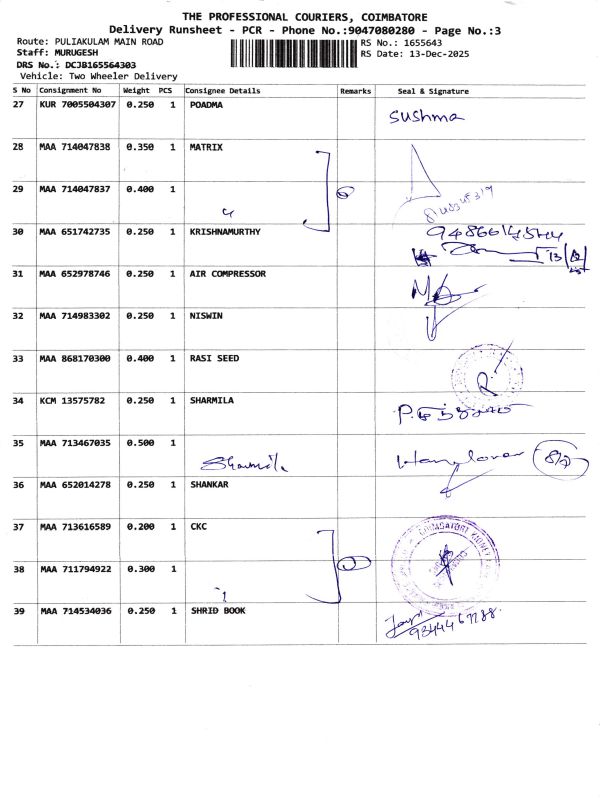 THE PROFESSIONAL COURIERS, COIMBATORE
Delivery Runsheet - PCR - Phone No.:9047080280 - Page No.:3
Route: PULIAKULAM MAIN ROAD RS No.: 1655643
Staff: MURUGESH RS Date: 13-Dec-2025
DRS No.: DCJB165564303
Vehicle: Two Wheeler Delivery
S No Consignment No Weight PCS Consignee Details Remarks Seal & Signature
27 KUR 7005504307 0.250 1 POADMA Sushma
28 MAA 714047838 0.350 1 MATRIX
29 MAA 714047837 0.400 1
30 MAA 651742735 0.250 1 KRISHNAMURTHY
31 MAA 652978746 0.250 1 AIR COMPRESSOR
32 MAA 714983302 0.250 1 NISWIN
33 MAA 868170300 0.400 1 RASI SEED
34 KCM 13575782 0.250 1 SHARMILA
35 MAA 713467035 0.500 1 Sharmila
36 MAA 652014278 0.250 1 SHANKAR
37 MAA 713616589 0.200 1 CKC
38 MAA 711794922 0.300 1
39 MAA 714534036 0.250 1 SHRID BOOK